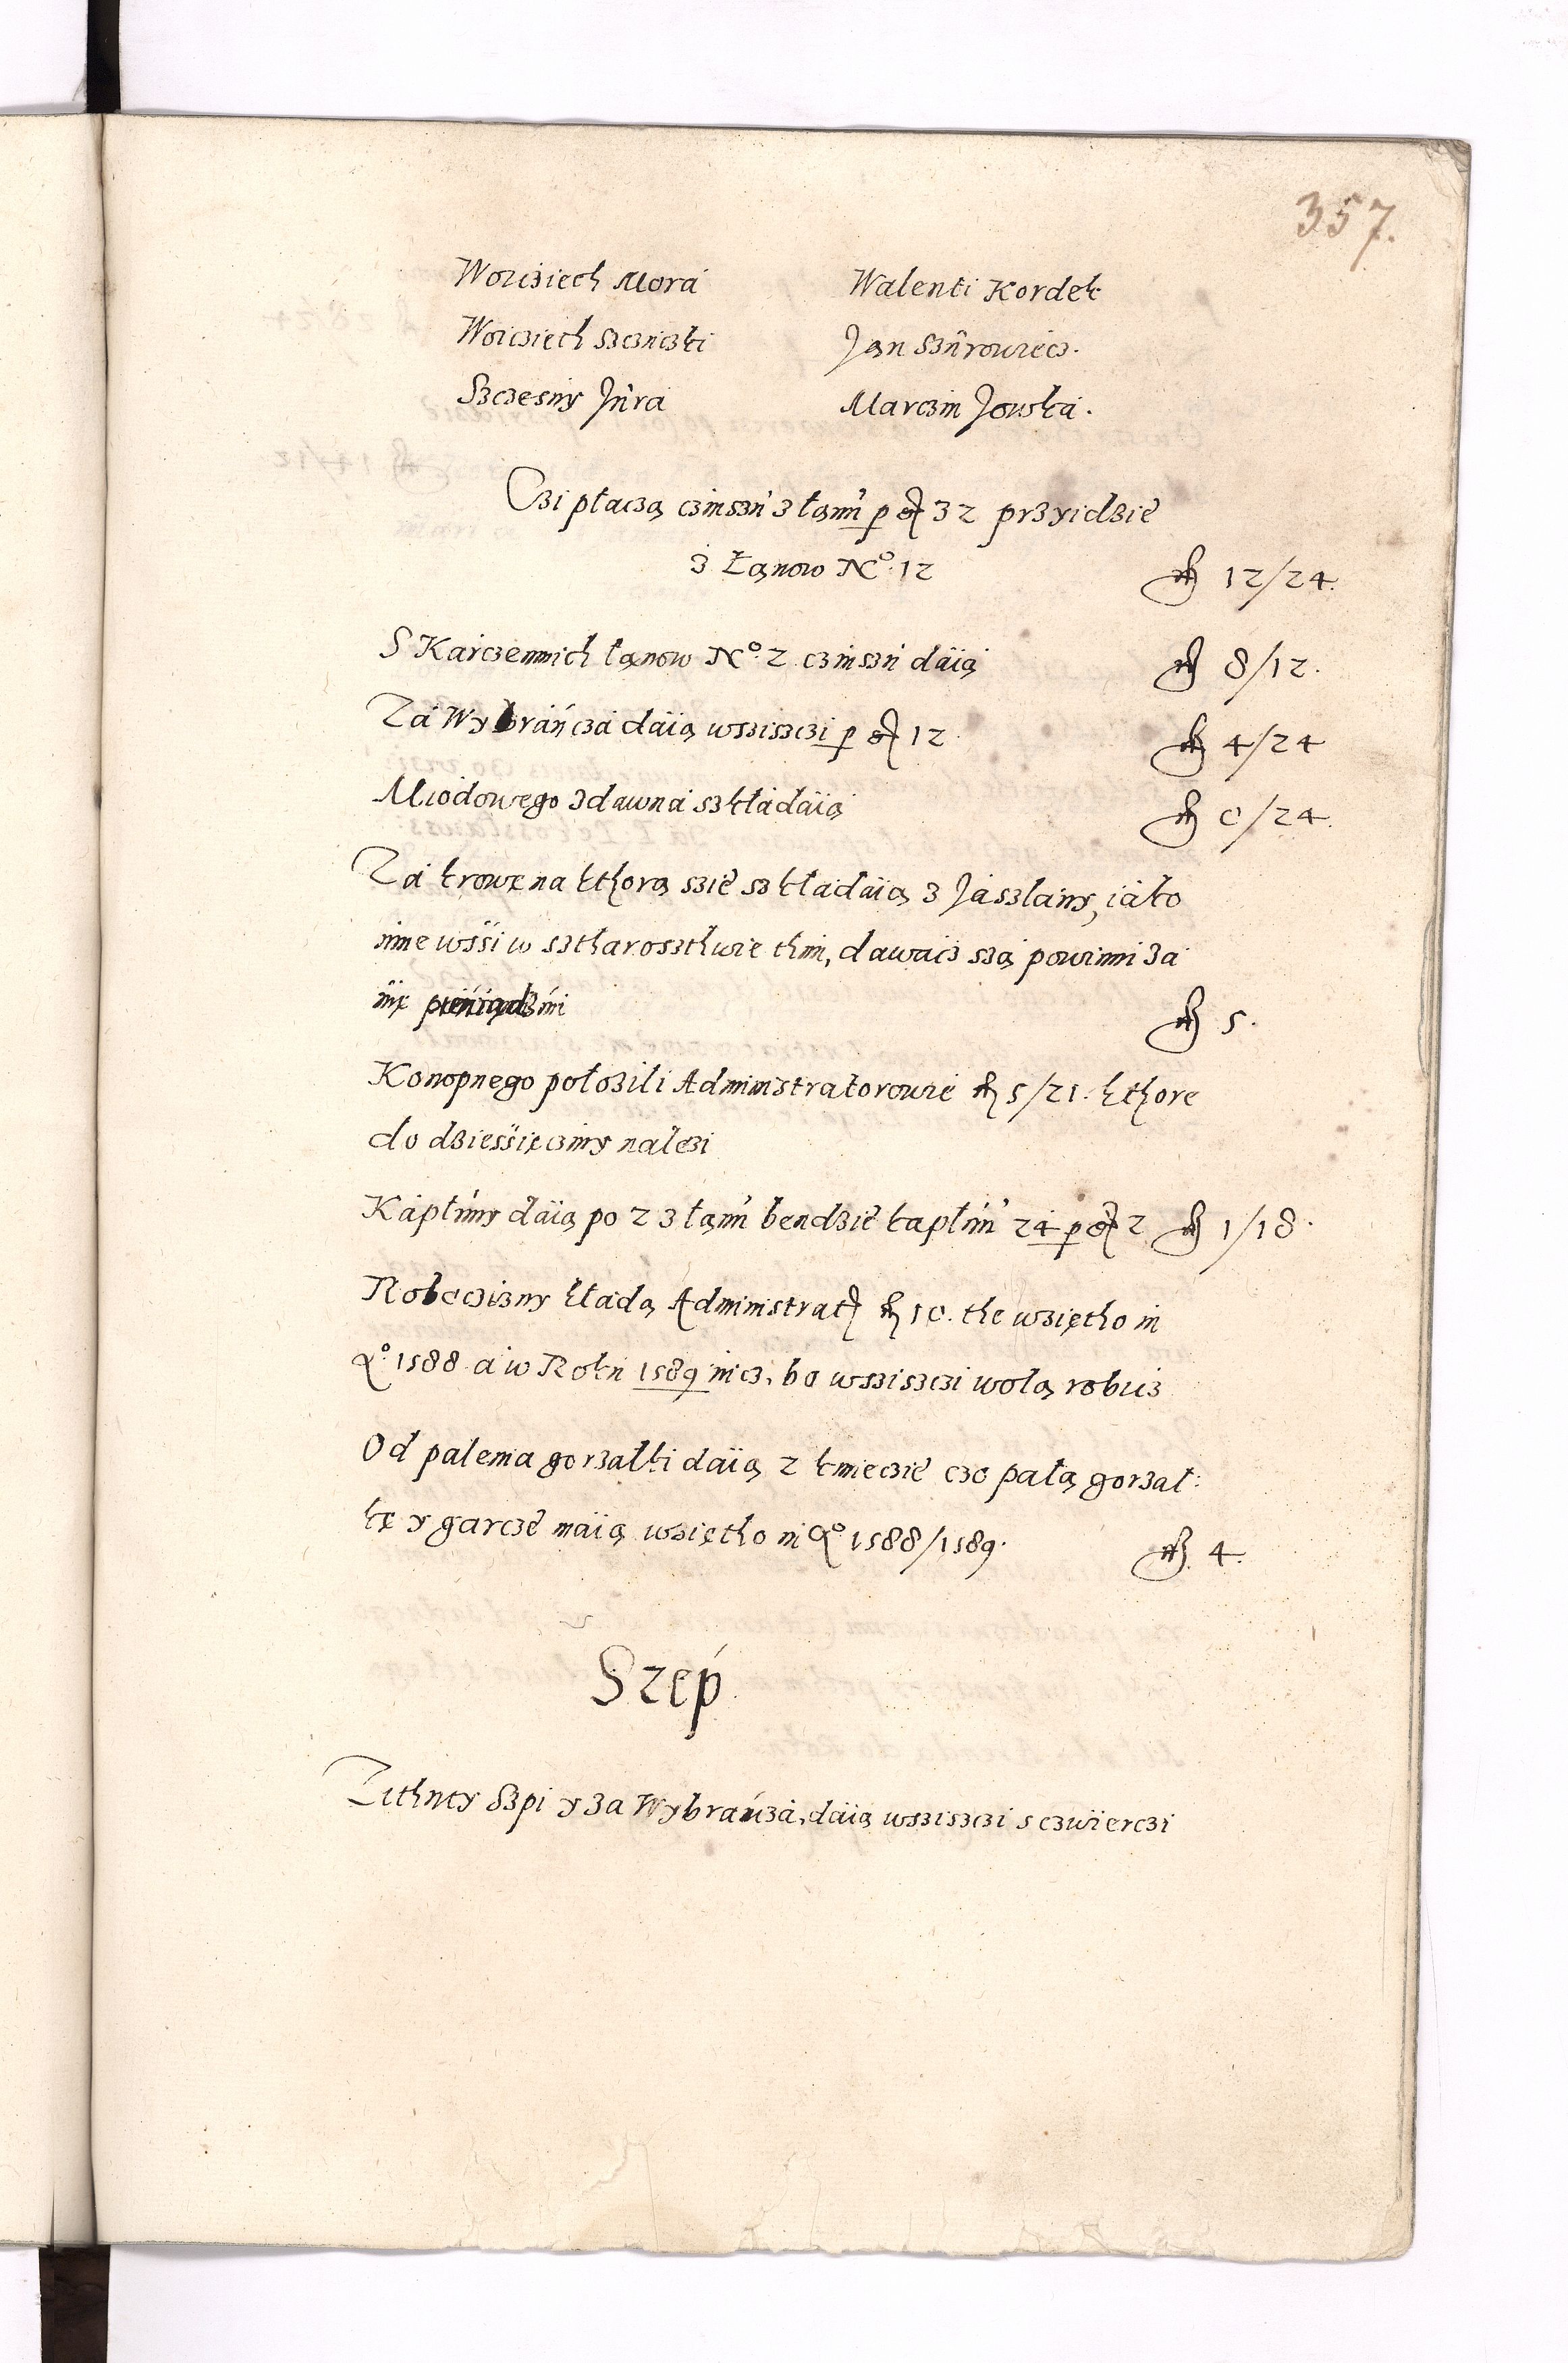 357.
Woiciech Mora Walenti Kordek
Woiciech Szcziczki Jan Szurowiecz.
Szczesny Jura Marczin Jowka.
Czi płaczą czinszu z łanu p gr 32 przyidzie
z Łanow No. 12 fl 12/24.
S Karczemnich łanow No. 2 czinszu daią fl 8/12.
Za Wybrańcza daią wsziszczi p gr 12 fl 4/24
Miodowego zdawna szkładaią fl 0/24.
Za krowę na kthorą szie szkładaią z Jaszlany, iako
inne wssi w sztharoszthwie thim, dawacz szą powinni za
nię pieniądzmi fl 5.
Konopnego położili Administratorowie fl 5/21. kthore
do dziessięciny należi
Kapłuny daią po 2 z łanu bendzie kapłun 24 p gr 2 fl 1/18.
Robocizny kładą Administrat fl 10. the wzięto in
Ao 1588 a w Roku 1589 nicz, bo wsziszczi wolą robicz
Od palenia gorzałki daią 2 kmiecie czo palą gorzał:
kę y garcze maią wziętho in Ao 1588/1589. fl 4.
Szep
Zithny Szpi y za Wybrańcza, daią wsziszczi s czwierczi